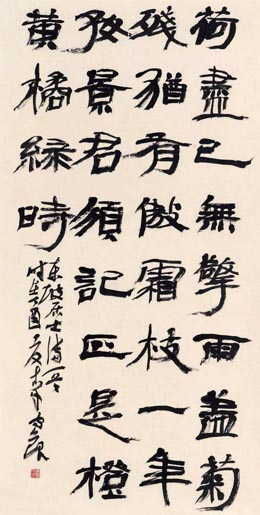 荷盡已無擎雨盖菊
殘猶有傲霜枝一年
好景君須記正是橙
黄橘緑時
東坡居士詩